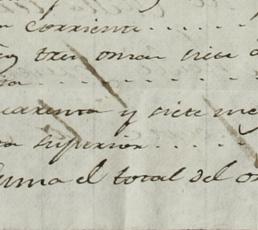 corriente . . . . .
y tres onzas siete
. . . . . . . . .
quarenta y siete
superior . . . . .
suma el total del